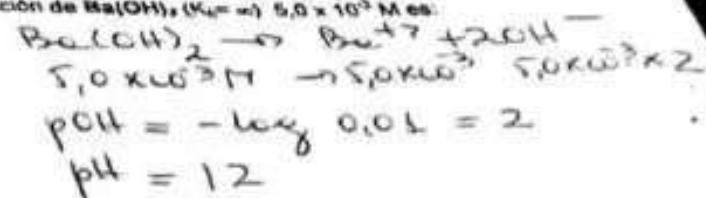 ción de Ba(OH)₂ (K₆= ∞) 5,0 x 10⁻³ M es:
Ba(OH)₂ → Ba⁺² + 2OH⁻
5,0 x10⁻³ M → 5,0x10⁻³ 5,0x10⁻³ x 2
pOH = - log 0,01 = 2
pH = 12